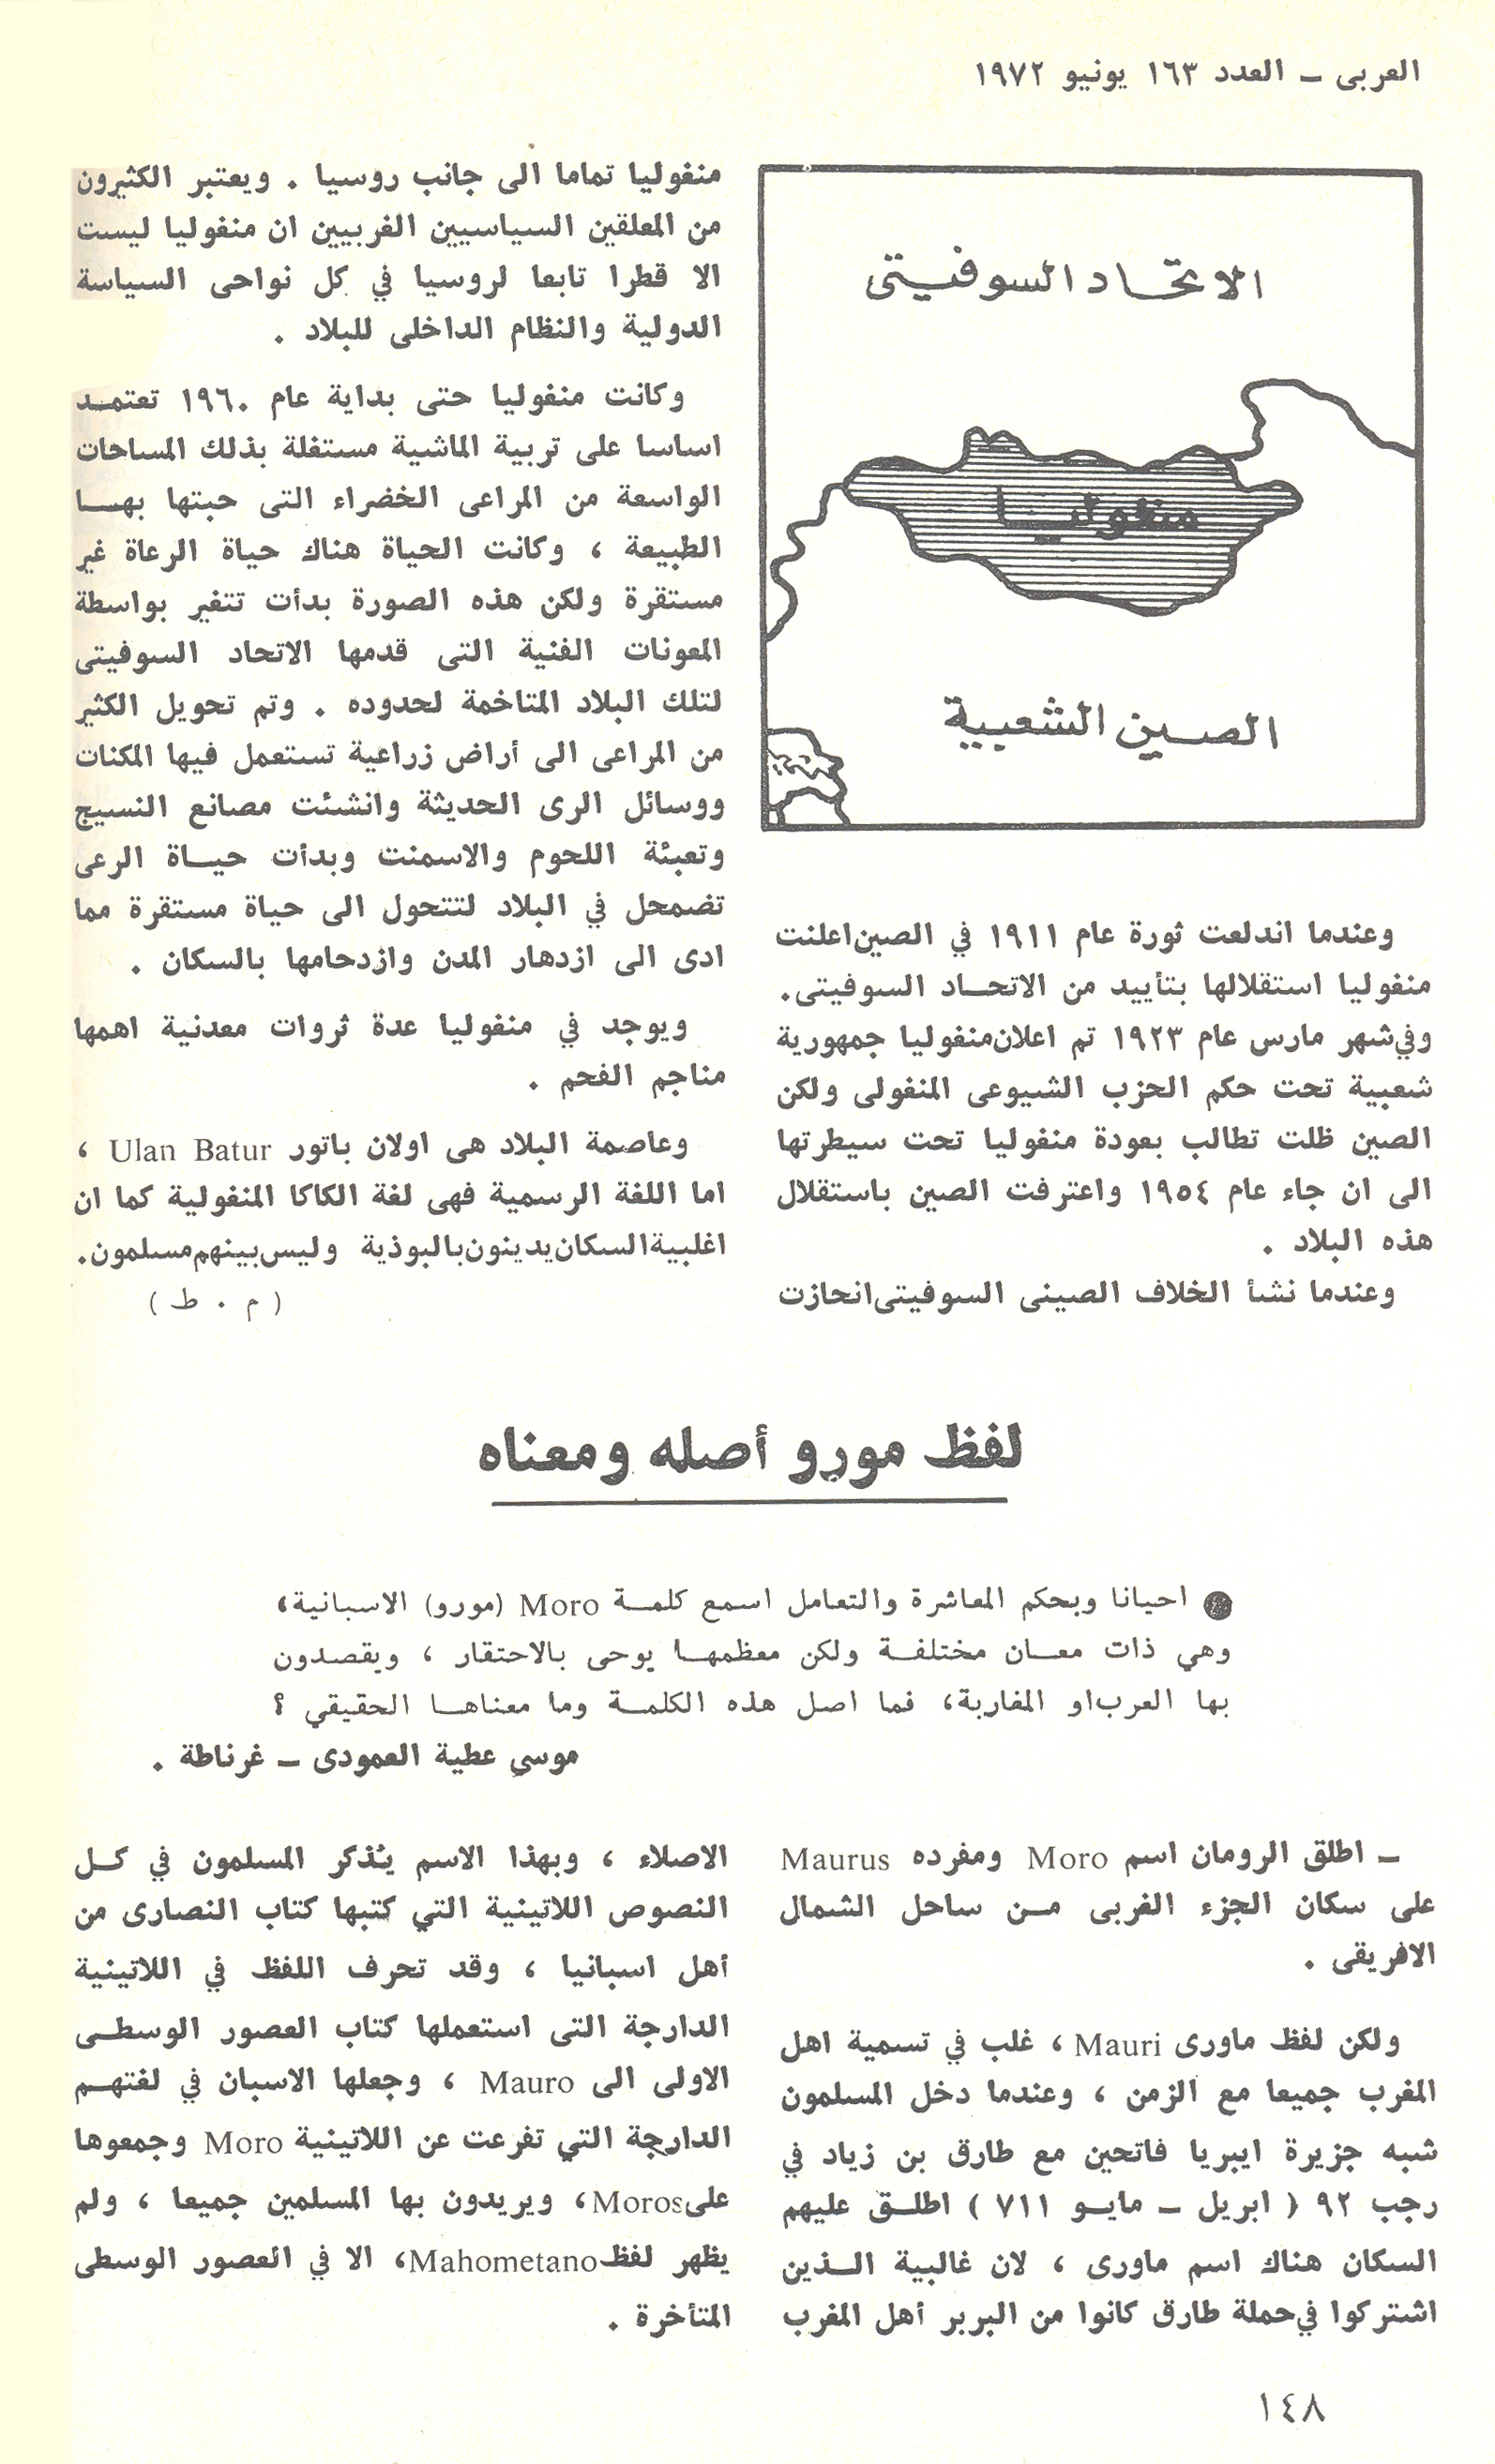 العربى – العدد ١٦٣ يونيو ١٩٧٢
الاتحاد السوفيتى
منغوليا
الصين الشعبية
وعندما اندلعت ثورة عام ١٩١١ في الصين اعلنت
منغوليا استقلالها بتأييد من الاتحاد السوفيتى.
وفي شهر مارس عام ١٩٢٣ تم اعلان منغوليا جمهورية
شعبية تحت حكم الحزب الشيوعى المنغولى ولكن
الصين ظلت تطالب بعودة منغوليا تحت سيطرتها
الى ان جاء عام ١٩٥٤ واعترفت الصين باستقلال
هذه البلاد .
وعندما نشأ الخلاف الصينى السوفيتى انحازت
منغوليا تماما الى جانب روسيا . ويعتبر الكثيرون
من المعلقين السياسيين الغربيين ان منغوليا ليست
الا قطرا تابعا لروسيا في كل نواحى السياسة
الدولية والنظام الداخلى للبلاد .
وكانت منغوليا حتى بداية عام ١٩٦٠ تعتمد
اساسا على تربية الماشية مستغلة بذلك المساحات
الواسعة من المراعى الخضراء التى حبتها بها
الطبيعة ، وكانت الحياة هناك حياة الرعاة غير
مستقرة ولكن هذه الصورة بدأت تتغير بواسطة
المعونات الفنية التى قدمها الاتحاد السوفيتى
لتلك البلاد المتاخمة لحدوده . وتم تحويل الكثير
من المراعى الى أراض زراعية تستعمل فيها المكنات
ووسائل الرى الحديثة وانشئت مصانع النسيج
وتعبئة اللحوم والاسمنت وبدأت حياة الرعى
تضمحل في البلاد لتتحول الى حياة مستقرة مما
ادى الى ازدهار المدن وازدحامها بالسكان .
ويوجد في منغوليا عدة ثروات معدنية اهمها
مناجم الفحم .
وعاصمة البلاد هى اولان باتور Ulan Batur ،
اما اللغة الرسمية فهى لغة الكاكا المنغولية كما ان
اغلبية السكان يدينون بالبوذية وليس بينهم مسلمون.
( م . ط )
لفظ مورو أصله ومعناه
● احيانا وبحكم المعاشرة والتعامل اسمع كلمة Moro (مورو) الاسبانية،
وهي ذات معان مختلفة ولكن معظمها يوحى بالاحتقار ، ويقصدون
بها العرب او المغاربة، فما اصل هذه الكلمة وما معناها الحقيقي ؟
موسي عطية العمودى – غرناطة .
– اطلق الرومان اسم Moro ومفرده Maurus
على سكان الجزء الغربى من ساحل الشمال
الافريقى .
ولكن لفظ ماورى Mauri ، غلب في تسمية اهل
المغرب جميعا مع الزمن ، وعندما دخل المسلمون
شبه جزيرة ايبريا فاتحين مع طارق بن زياد في
رجب ٩٢ ( ابريل – مايو ٧١١ ) اطلق عليهم
السكان هناك اسم ماورى ، لان غالبية الذين
اشتركوا في حملة طارق كانوا من البربر أهل المغرب
الاصلاء ، وبهذا الاسم يُذكر المسلمون في كل
النصوص اللاتينية التي كتبها كتاب النصارى من
أهل اسبانيا ، وقد تحرف اللفظ في اللاتينية
الدارجة التى استعملها كتاب العصور الوسطى
الاولى الى Mauro ، وجعلها الاسبان في لغتهم
الدارجة التي تفرعت عن اللاتينية Moro وجمعوها
على Moros، ويريدون بها المسلمين جميعا ، ولم
يظهر لفظ Mahometano، الا في العصور الوسطى
المتأخرة .
١٤٨